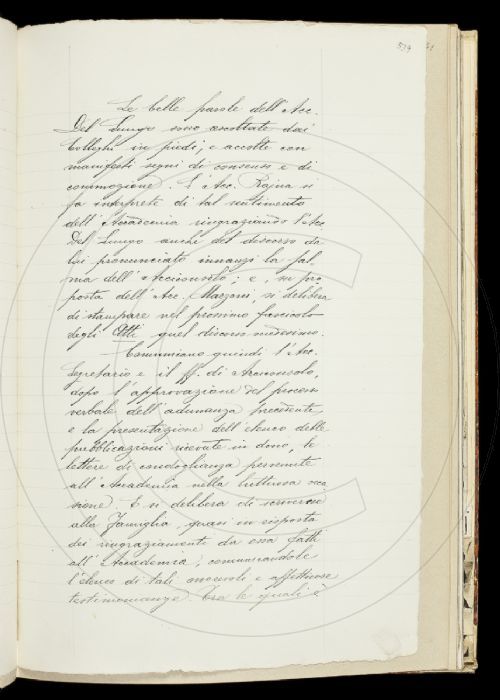 539
Le belle parole dell'Acc.
Del Lungo sono ascoltate dai
Colleghi in piedi, e accolte con
manifesti segni di consenso e di
commozione. L'Acc. Rajna si
fa interprete di tal sentimento
dell'Accademia ringraziando l'Acc.
Del Lungo anche del discorso da
lui pronunciato innanzi la sal
ma dell'Arciconsolo; e, su pro
posta dell'Acc. Mazzoni, si delibera
di stampare nel prossimo fascicolo
degli Atti quel discorso medesimo.
Comunicano quindi l'Acc.
Segretario e il ff. di Arciconsolo,
dopo l'approvazione del processo
verbale dell'adunanza precedente,
e la presentazione dell'elenco delle
pubblicazioni ricevute in dono, le
lettere di condoglianza pervenute
all'Accademia nella luttuosa occa
sione. E si delibera di scriverne
alla Famiglia, quasi in risposta
dei ringraziamenti da essa fatti
all'Accademia, comunicandole
l'elenco di tali onorevoli e affettuose
testimonianze. Tra le quali è